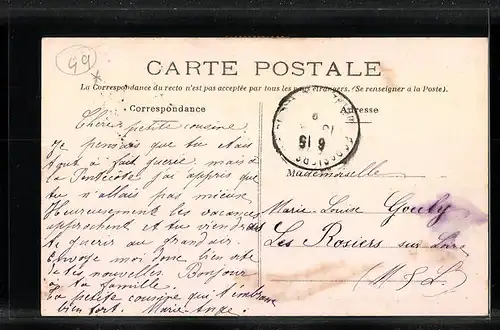 49
CARTE POSTALE
La Correspondance du recto n'est pas acceptée par tous les pays étrangers. (Se renseigner à la Poste).
Correspondance
Chère petite cousine
Je pensais que tu étais
tout à fait guerie mais à
la Pentecôte j'ai appris que
tu n'allais pas mieux
Heureusement les vacances
approchent et tu viendras
te guerir au grand air.
Envoye moi donc bien vite
de tes nouvelles. Bonjour
à ta famille.
Ta petite cousine qui t'embrasse
bien fort. Marie-Ange.
Adresse
6 15
Mademoiselle
Marie-Louise Gouby
Les Rosiers sur Loire
(M & L)